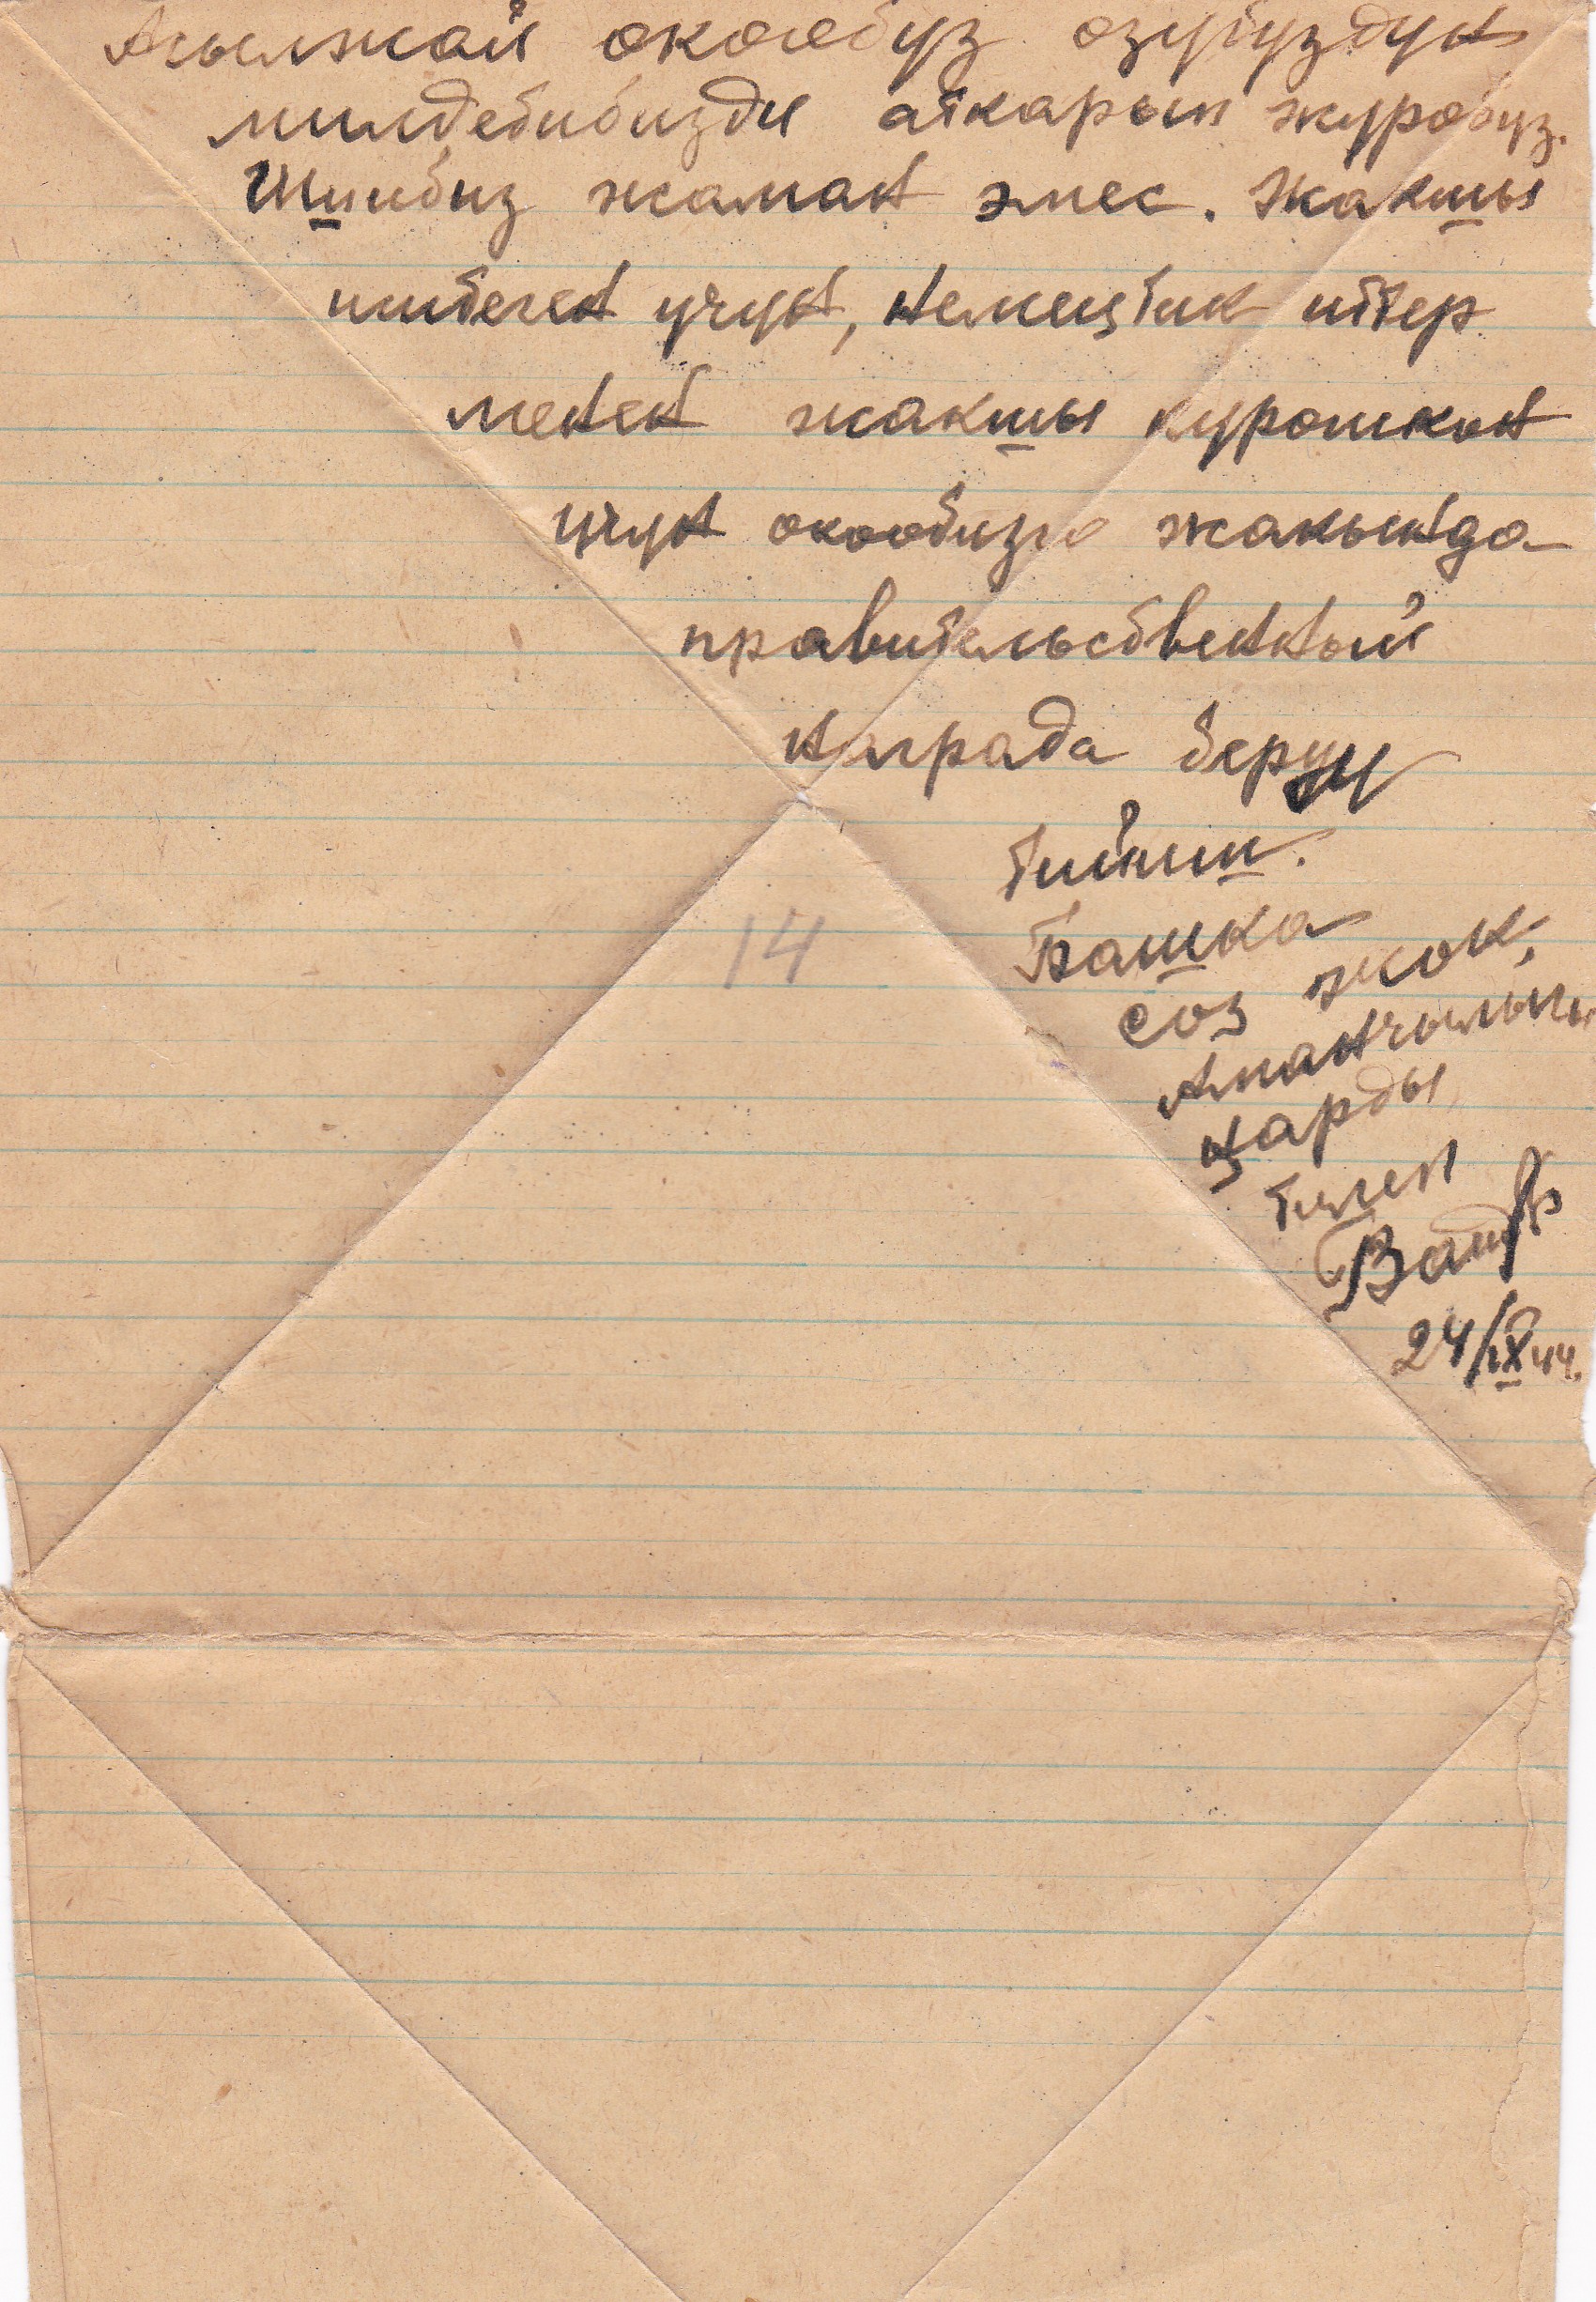 Асылжай экообуз озубуздун
милдетибизди аткарып журобуз.
Ишибиз жаман эмес. Жакшы
иштеген учун, немецтик иттер
менен жакшы курошкон
учун экообизго жакында
правительственный
награда беруу
тийиш.
Башка
соз жок,
Аманчылыгы
ңарды
тилеп
24/IX 44.
14